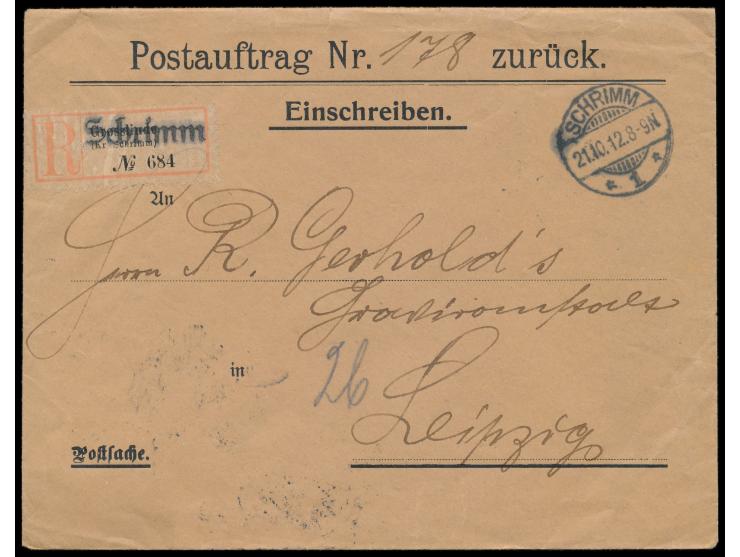 Postauftrag Nr. 178 zurück.
Einschreiben.
R
Schrimm
(Kr. Schrimm)
№ 684
SCHRIMM
21.10.12.8-9N
* 1 *
An
Herrn R. Gerhold's
Graviranstalt
in
26
Leipzig
Postsache.